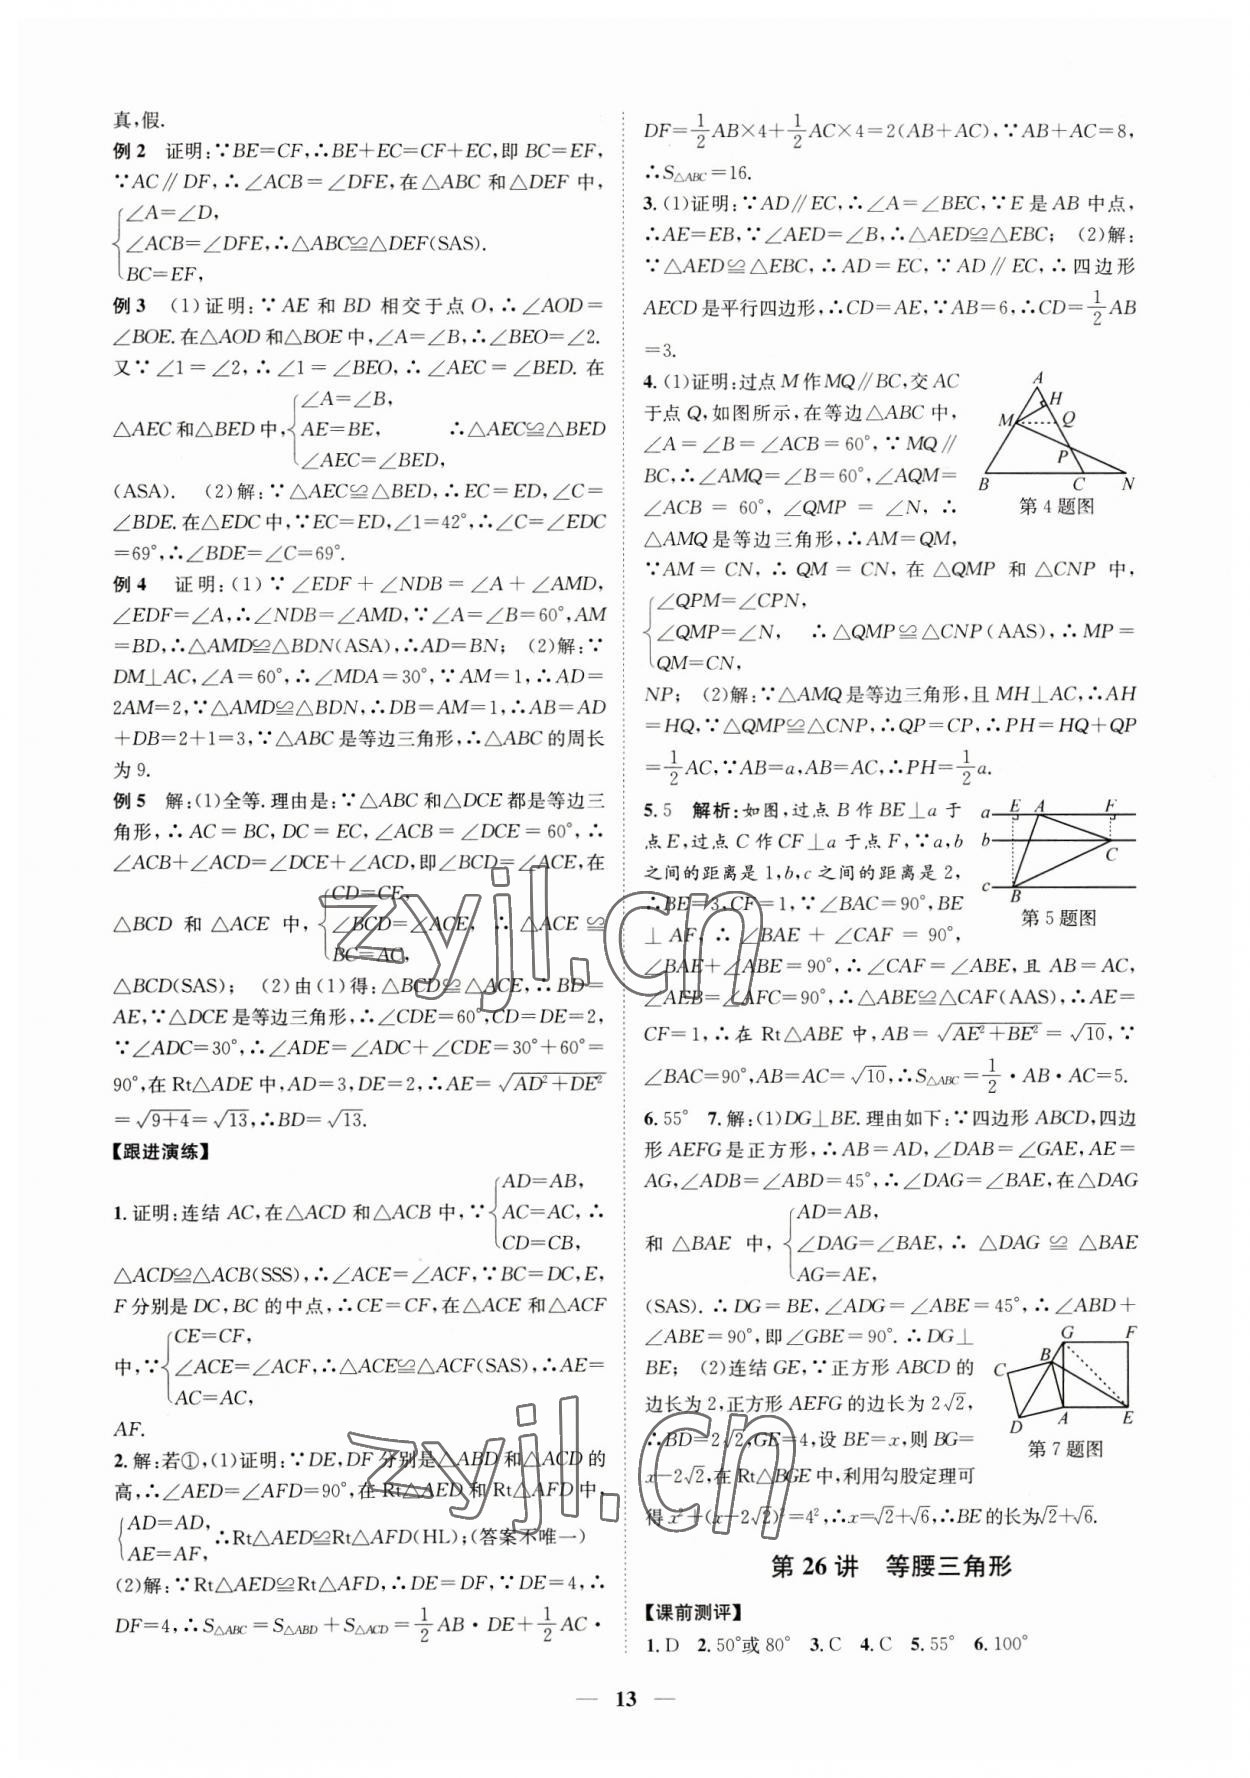 真,假.
例2 证明:∵BE=CF,∴BE+EC=CF+EC,即 BC=EF,
∵AC∥DF,∴∠ACB=∠DFE,在△ABC 和△DEF 中,
∠A=∠D,
∠ACB=∠DFE,∴△ABC≌△DEF(SAS).
BC=EF,
例3 (1)证明:∵AE 和 BD 相交于点 O,∴∠AOD=
∠BOE.在△AOD 和△BOE 中,∠A=∠B,∴∠BEO=∠2.
又∵∠1=∠2,∴∠1=∠BEO,∴∠AEC=∠BED.在
∠A=∠B,
△AEC 和△BED 中, AE=BE, ∴△AEC≌△BED
∠AEC=∠BED,
(ASA). (2)解:∵△AEC≌△BED,∴EC=ED,∠C=
∠BDE.在△EDC 中,∵EC=ED,∠1=42°,∴∠C=∠EDC
=69°,∴∠BDE=∠C=69°.
例4 证明:(1)∵∠EDF+∠NDB=∠A+∠AMD,
∠EDF=∠A,∴∠NDB=∠AMD,∵∠A=∠B=60°,AM
=BD,∴△AMD≌△BDN(ASA),∴AD=BN; (2)解:∵
DM⊥AC,∠A=60°,∴∠MDA=30°,∵AM=1,∴AD=
2AM=2,∵△AMD≌△BDN,∴DB=AM=1,∴AB=AD
+DB=2+1=3,∵△ABC 是等边三角形,∴△ABC 的周长
为 9.
例5 解:(1)全等.理由是:∵△ABC 和△DCE 都是等边三
角形,∴AC=BC,DC=EC,∠ACB=∠DCE=60°,∴
∠ACB+∠ACD=∠DCE+∠ACD,即∠BCD=∠ACE,在
CD=CE,
△BCD 和 △ACE 中, ∠BCD=∠ACE, ∴ △ACE ≌
BC=AC,
△BCD(SAS); (2)由(1)得:△BCD≌△ACE,∴BD=
AE,∵△DCE 是等边三角形,∴∠CDE=60°,CD=DE=2,
∵∠ADC=30°,∴∠ADE=∠ADC+∠CDE=30°+60°=
90°,在 Rt△ADE 中,AD=3,DE=2,∴AE=√(AD²+DE²)
=√(9+4)=√13,∴BD=√13.
【跟进演练】
AD=AB,
1.证明:连结 AC,在△ACD 和△ACB 中,∵ AC=AC, ∴
CD=CB,
△ACD≌△ACB(SSS),∴∠ACE=∠ACF,∵BC=DC,E,
F 分别是 DC,BC 的中点,∴CE=CF,在△ACE 和△ACF
CE=CF,
中,∵ ∠ACE=∠ACF,∴△ACE≌△ACF(SAS),∴AE=
AC=AC,
AF.
2.解:若①,(1)证明:∵DE,DF 分别是△ABD 和△ACD 的
高,∴∠AED=∠AFD=90°,在 Rt△AED 和 Rt△AFD 中,
AD=AD,
∴Rt△AED≌Rt△AFD(HL);(答案不唯一)
AE=AF,
(2)解:∵Rt△AED≌Rt△AFD,∴DE=DF,∵DE=4,∴
DF=4,∴S△ABC=S△ABD+S△ACD=1/2 AB·DE+1/2 AC·
DF=1/2 AB×4+1/2 AC×4=2(AB+AC),∵AB+AC=8,
∴S△ABC=16.
3.(1)证明:∵AD∥EC,∴∠A=∠BEC,∵E 是 AB 中点,
∴AE=EB,∵∠AED=∠B,∴△AED≌△EBC; (2)解:
∵△AED≌△EBC,∴AD=EC,∵AD∥EC,∴四边形
AECD 是平行四边形,∴CD=AE,∵AB=6,∴CD=1/2 AB
=3.
4.(1)证明:过点 M 作 MQ∥BC,交 AC
于点 Q,如图所示,在等边△ABC 中,
∠A=∠B=∠ACB=60°,∵MQ∥
BC,∴∠AMQ=∠B=60°,∠AQM=
∠ACB=60°,∠QMP=∠N,∴
△AMQ 是等边三角形,∴AM=QM,
A
H
M
Q
P
B
C
N
第4题图
∵AM=CN,∴QM=CN,在△QMP 和△CNP 中,
∠QPM=∠CPN,
∠QMP=∠N, ∴△QMP≌△CNP(AAS),∴MP=
QM=CN,
NP; (2)解:∵△AMQ 是等边三角形,且 MH⊥AC,∴AH
=HQ,∵△QMP≌△CNP,∴QP=CP,∴PH=HQ+QP
=1/2 AC,∵AB=a,AB=AC,∴PH=1/2 a.
5.5 解析:如图,过点 B 作 BE⊥a 于
点 E,过点 C 作 CF⊥a 于点 F,∵a,b
之间的距离是 1,b,c 之间的距离是 2,
∴BE=3,CF=1,∵∠BAC=90°,BE
⊥AF,∴∠BAE+∠CAF=90°,
a
E
A
F
b
C
c
B
第5题图
∠BAE+∠ABE=90°,∴∠CAF=∠ABE,且 AB=AC,
∠AEB=∠AFC=90°,∴△ABE≌△CAF(AAS),∴AE=
CF=1,∴在 Rt△ABE 中,AB=√(AE²+BE²)=√10,∵
∠BAC=90°,AB=AC=√10,∴S△ABC=1/2·AB·AC=5.
6.55° 7.解:(1)DG⊥BE.理由如下:∵四边形 ABCD,四边
形 AEFG 是正方形,∴AB=AD,∠DAB=∠GAE,AE=
AG,∠ADB=∠ABD=45°,∴∠DAG=∠BAE,在△DAG
AD=AB,
和 △BAE 中, ∠DAG=∠BAE,∴ △DAG ≌ △BAE
AG=AE,
(SAS).∴DG=BE,∠ADG=∠ABE=45°,∴∠ABD+
∠ABE=90°,即∠GBE=90°.∴DG⊥
BE; (2)连结 GE,∵正方形 ABCD 的
边长为 2,正方形 AEFG 的边长为 2√2,
∴BD=2√2,GE=4,设 BE=x,则 BG=
x-2√2,在 Rt△BGE 中,利用勾股定理可
得 x²+(x-2√2)²=4²,∴x=√2+√6,∴BE 的长为√2+√6.
G
F
B
C
D
A
E
第7题图
第 26 讲 等腰三角形
【课前测评】
1.D 2.50°或 80° 3.C 4.C 5.55° 6.100°
— 13 —
zyjl.cn
zyjl.cn